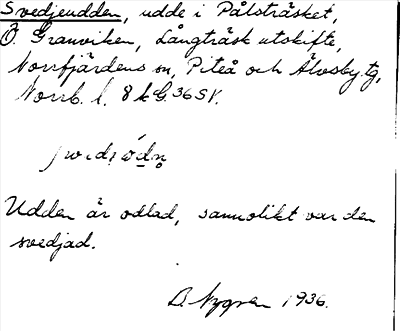 Svedjeudden, udde i Pålsträsket,
Ö. Granviken, Långträsk utskifte,
Norrfjärdens sn, Piteå och Älvsby tg,
Norrb. l. 8 k G. 36 SV.
Udden är odlad, sannolikt var den
svedjad.
B. Nygren 1936.